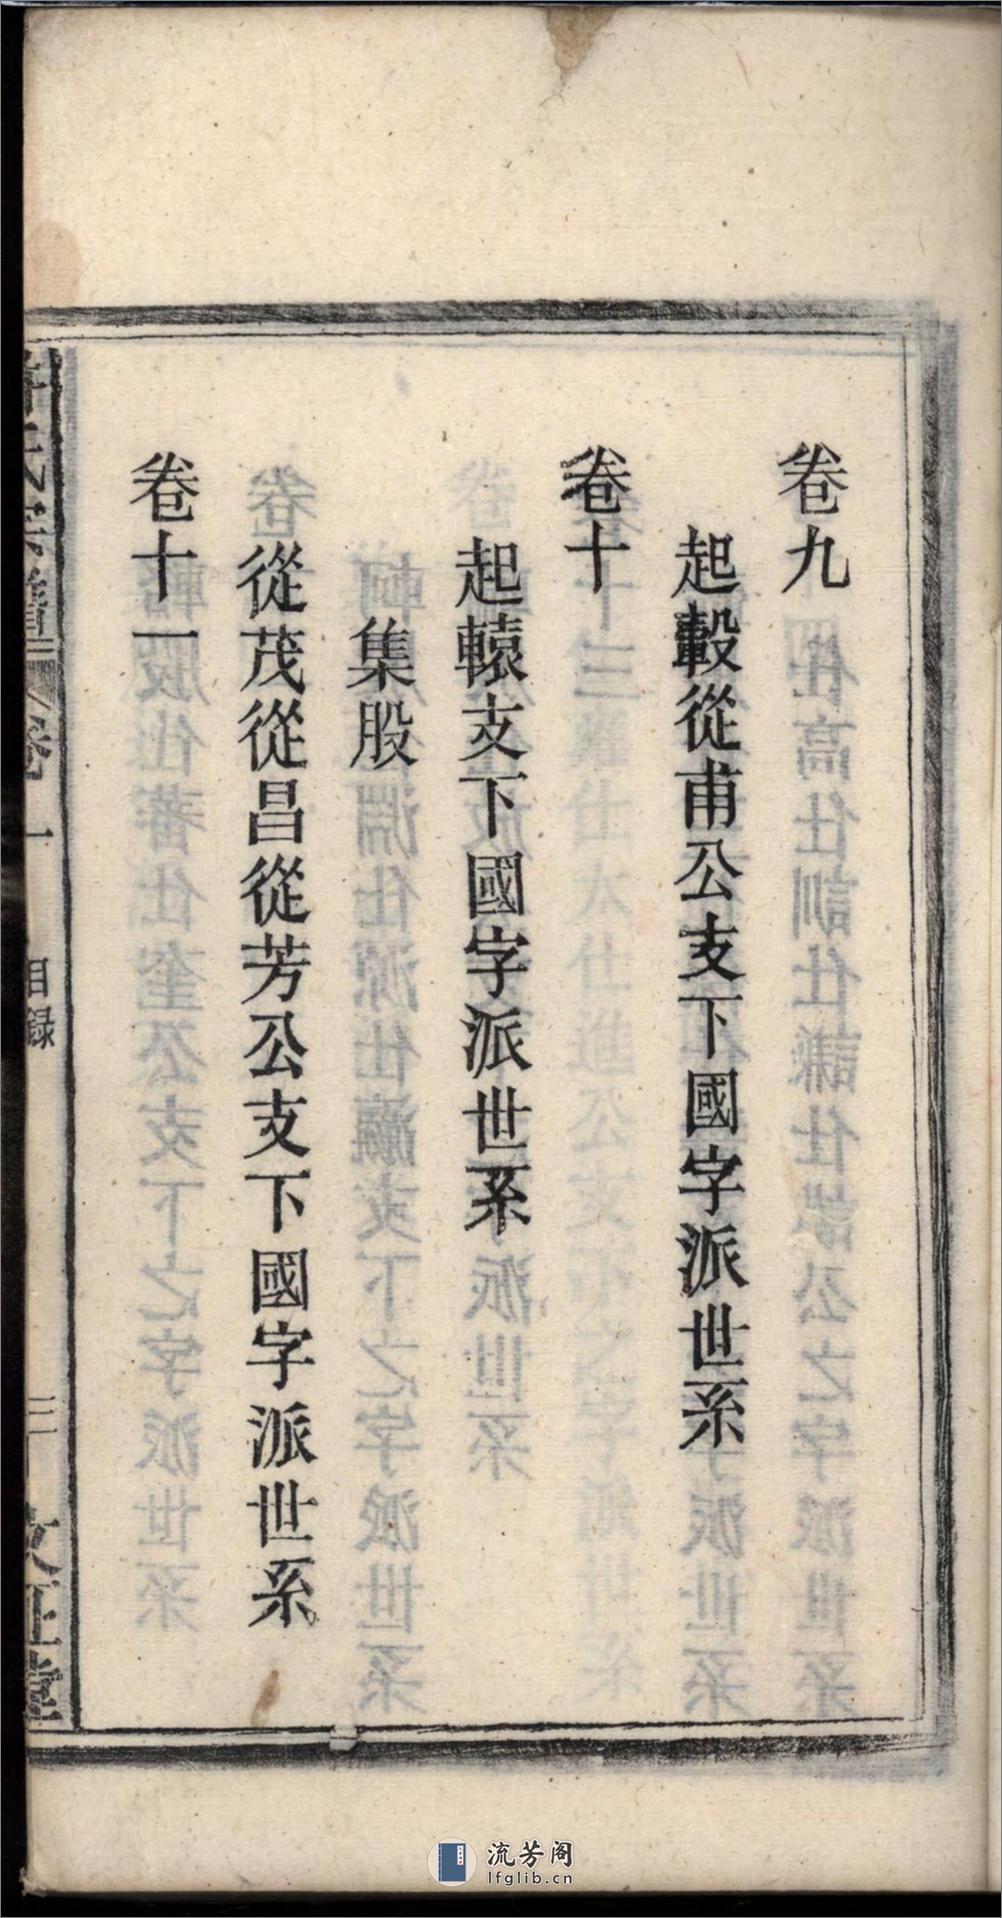 卷九
起轂從甫公支下國字派世系
卷十
起轅支下國字派世系
集股
從茂從昌從芳公支下國字派世系
卷十一
卷一
目錄
三
流芳阁
lfglib.cn